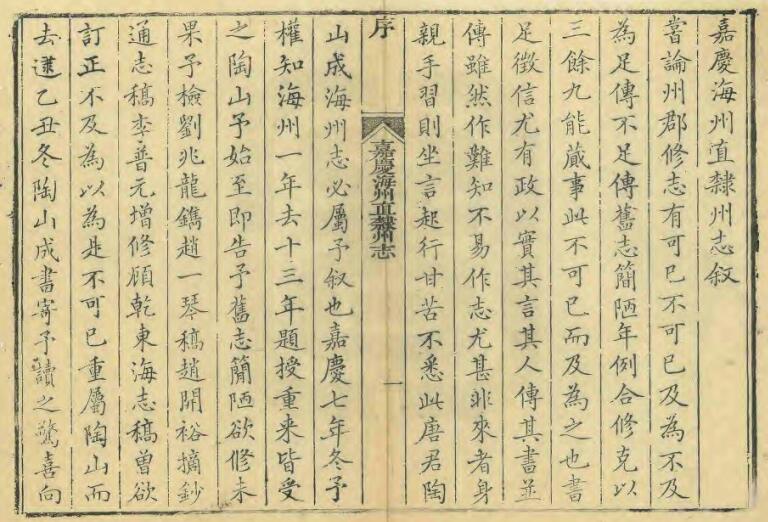 嘉慶海州直隸州志叙
嘗論州郡修志有可已不可已及為不及
為足傳不足傳舊志簡陋年例合修克以
三餘九能蕆事此不可已而及為之也書
足徵信尤有政以實其言其人傳其書並
傳雖然作難知不易作志尤甚非來者身
親手習則坐言起行甘苦不悉此唐君陶
序
嘉慶海州直隸州志
一
山成海州志必屬予叙也嘉慶七年冬予
權知海州一年去十三年題授重来皆受
之陶山予始至即告予舊志簡陋欲修未
果予檢劉兆龍鐫趙一琴稿趙開裕摘鈔
通志稿李普元增修顧乾東海志稿曽欲
訂正不及為以為是不可已重屬陶山而
去逮乙丑冬陶山成書寄予讀之驚喜向